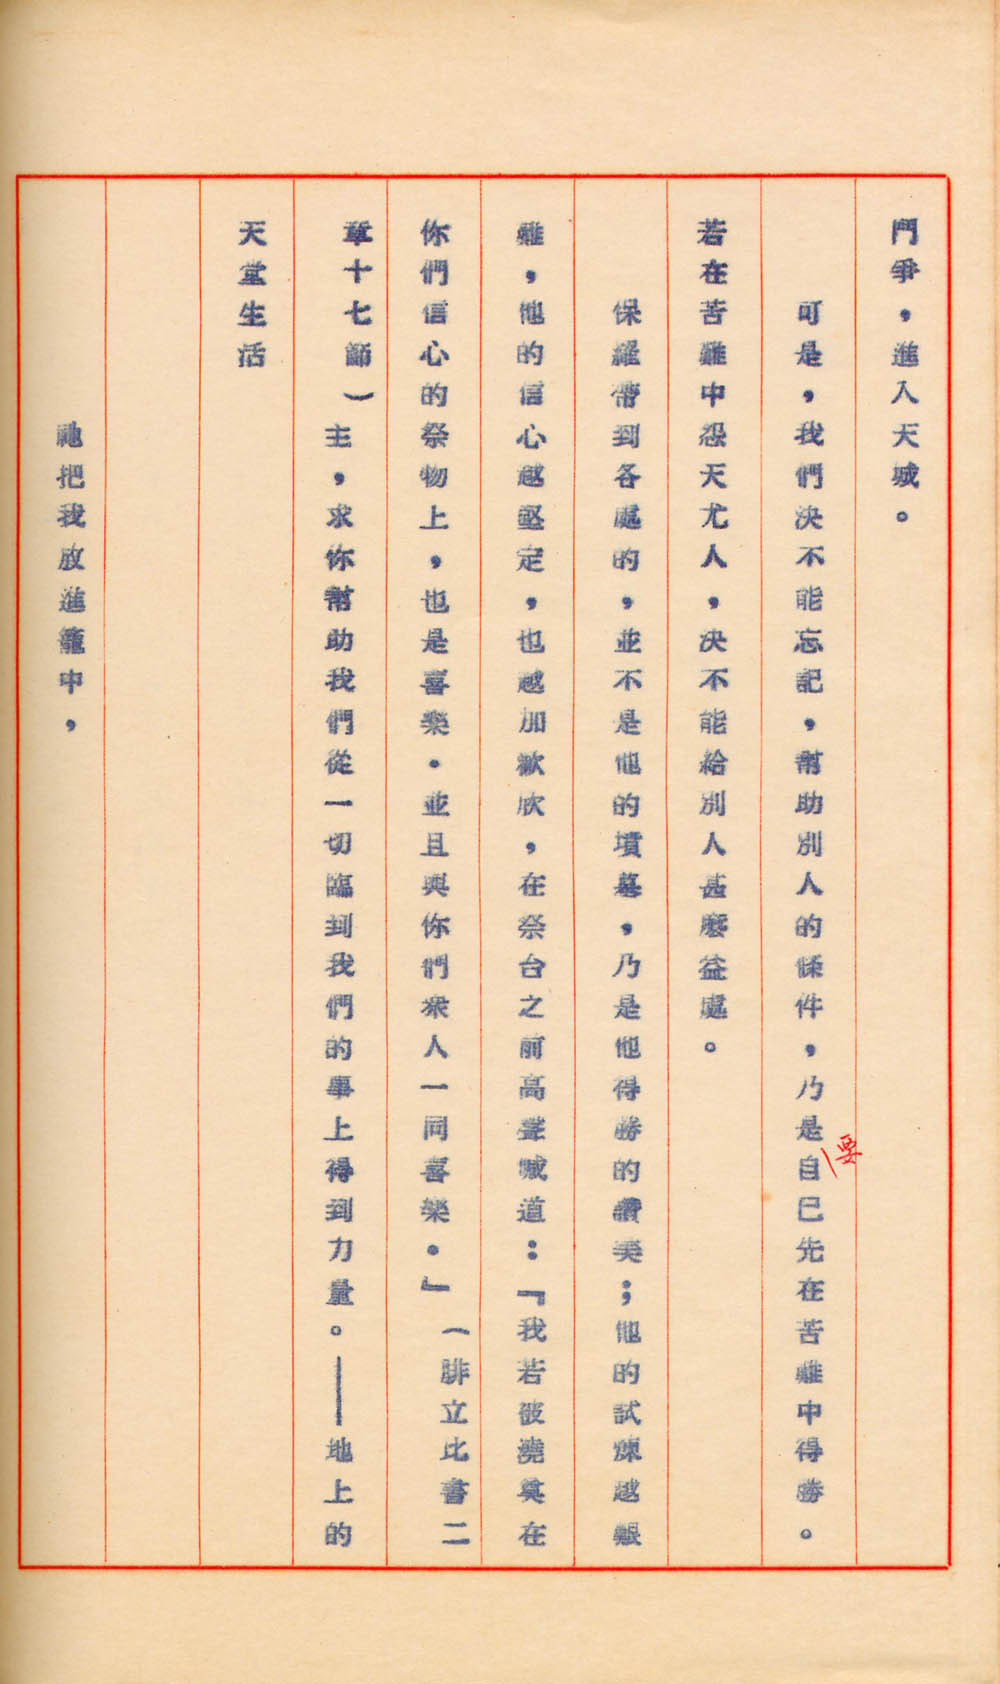 鬥爭，進入天城。
可是，我們決不能忘記，幫助別人的條件，乃是自己先在苦難中得勝。
要
若在苦難中怨天尤人，決不能給別人甚麼益處。
保羅帶到各處的，並不是他的墳墓，乃是他得勝的讚美；他的試煉越艱
難，他的信心越堅定，也越加歡欣，在祭台之前高聲喊道：『我若被澆奠在
你們信心的祭物上，也是喜樂．並且與你們衆人一同喜樂．』（腓立比書二
章十七節）主，求你幫助我們從一切臨到我們的事上得到力量。——地上的
天堂生活
祂把我放進籠中，